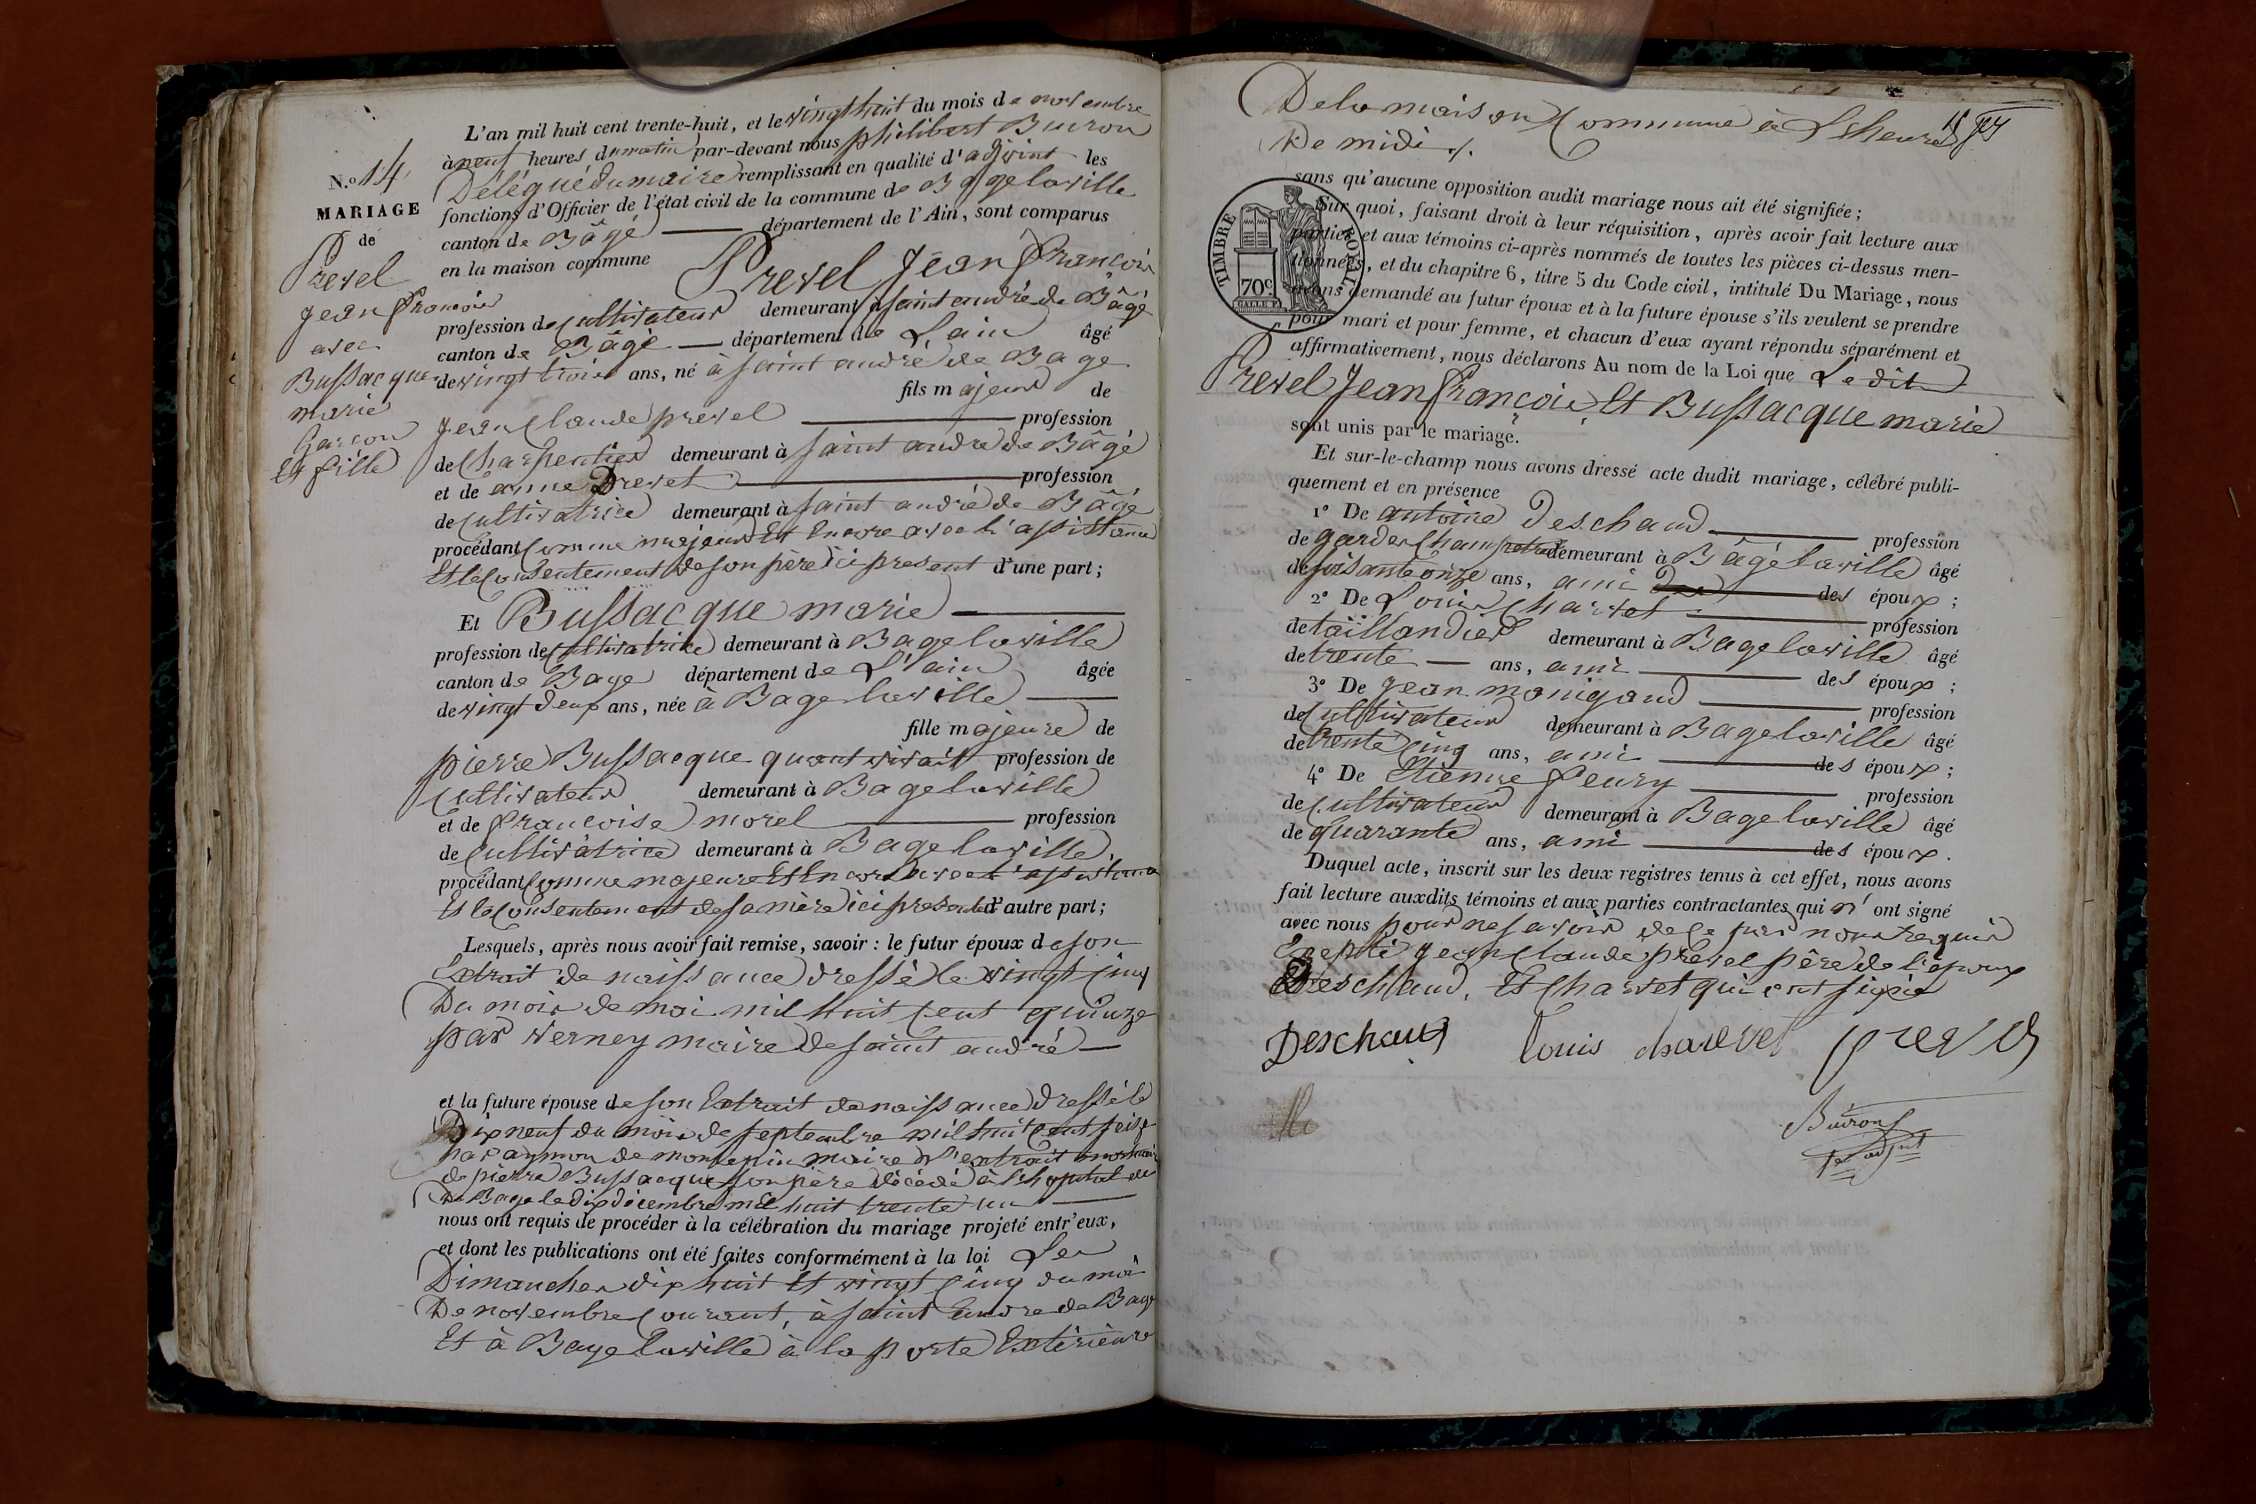 L'an mil huit cent trente-huit, et le vingthuit du mois de novembre
à neuf heures du matin par-devant nous philibert Buiron
N.º 14
Délégué du maire remplissant en qualité d'adjoint les
MARIAGE
fonctions d'Officier de l'état civil de la commune de Bagelaville
de
canton de Bâgé département de l'Ain, sont comparus
en la maison commune Prevel Jean françois
Prevel
jean françois
avec
Bussacque
marie
Garçon
Et fille
profession de cultivateur demeurant a saint andré de Bâgé
canton de Bâgé département de L'ain âgé
de vingt trois ans, né à saint andré de Bage
fils majeur de
jean claude prevel profession
de charpentier demeurant à saint andre de Bâgé
et de anne Drevet profession
de cultivatrice demeurant à saint andré de Bâgé
procédant comme majeur Et Encore avec l'assistance
Et le Consentement de son père ici present d'une part;
Et Bussacque marie
profession de cultivatrice demeurant à Bagelaville
canton de Bage département de L'ain âgée
de vingt deux ans, née à Bagelaville
fille majeure de
pierre Bussacque quant vivait profession de
cultivateur demeurant à Bagelaville
et de françoise morel profession
de cultivatrice demeurant à Bagelaville
procédant comme majeure Et Encore avec l'assistance
Et le Consentement de sa mère ici presente d'autre part;
Lesquels, après nous avoir fait remise, savoir: le futur époux de son
Extrait de naissance dressé le vingt cinq
Du mois de mai mil huit cent quinze
par verney maire de saint andré
et la future épouse de son Extrait de naissance dressé le
Dix neuf du mois de septembre mil huit cent seize
par aymon de montepin maire de l'extrait mortuaire
de pierre Bussacque son père décédé à l'hopital de
De Bage le dix décembre mil huit trente un
nous ont requis de procéder à la célébration du mariage projeté entr'eux,
et dont les publications ont été faites conformément à la loi Les
Dimanches dix huit Et vingt cinq du mois
De novembre courant, à saint andre de Bage
Et à Bagelaville à la porte Extérieure
De la maison Commune à L'heure
De midi ./.
sans qu'aucune opposition audit mariage nous ait été signifiée;
Sur quoi, faisant droit à leur réquisition, après avoir fait lecture aux
parties et aux témoins ci-après nommés de toutes les pièces ci-dessus men-
tionnées, et du chapitre 6, titre 5 du Code civil, intitulé Du Mariage, nous
avons demandé au futur époux et à la future épouse s'ils veulent se prendre
pour mari et pour femme, et chacun d'eux ayant répondu séparément et
affirmativement, nous déclarons Au nom de la Loi que Le dit
TIMBRE ROYAL
70c.
Prevel Jean françois Et Bussacque marie
sont unis par le mariage.
Et sur-le-champ nous avons dressé acte dudit mariage, célébré publi-
quement et en présence
1º De antoine Deschaud profession
de garde Champetre demeurant à Bâgé laville âgé
de soisante onze ans, ami des époux;
2º De Louis Charvet profession
de taillandier demeurant à Bagelaville âgé
de trente ans, ami des époux;
3º De jean manigaud profession
de cultivateur demeurant à Bagelaville âgé
de trente cinq ans, ami des époux;
4º De Etienne fleury profession
de cultivateur demeurant à Bagelaville âgé
de quarante ans, ami des époux.
Duquel acte, inscrit sur les deux registres tenus à cet effet, nous avons
fait lecture auxdits témoins et aux parties contractantes qui n'ont signé
avec nous pour ne savoir de ce par nous requis
Excepté jean claude prevel père de l'époux
Deschaud, Et Charvet qui ont signé
Deschaud Louis charvet prevel
Buiron
adjoint